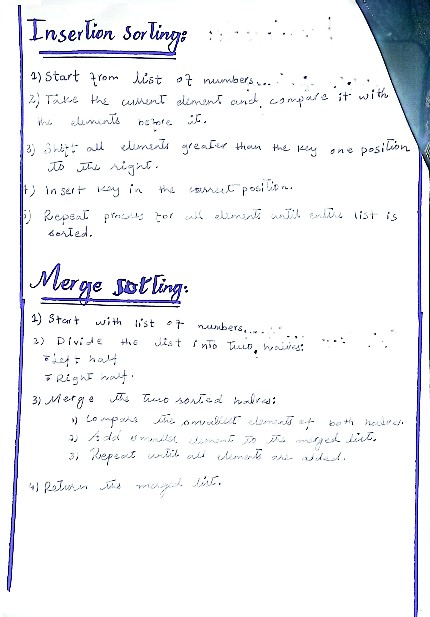 Insertion Sorting:
1) Start from list of numbers...
2) Take the current element and compare it with
the elements before it.
3) Shift all elements greater than the key one position
to the right.
4) Insert key in the correct position.
5) Repeat process for all elements until entire list is
sorted.
Merge sorting:
1) Start with list of numbers...
2) Divide the list into two halves:
• Left half
• Right half.
3) Merge the two sorted halves:
1) Compare the smallest elements of both halves
2) Add smaller element to the merged list.
3) Repeat until all elements are added.
4) Return the merged list.